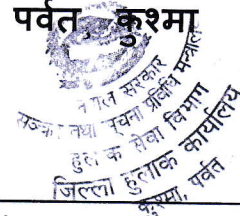 पर्वत, कुश्मा
नेपाल सरकार
सञ्चार तथा सूचना प्रविधि मन्त्रालय
हुलाक सेवा विभाग
जिल्ला हुलाक कार्यालय
कुश्मा, पर्वत